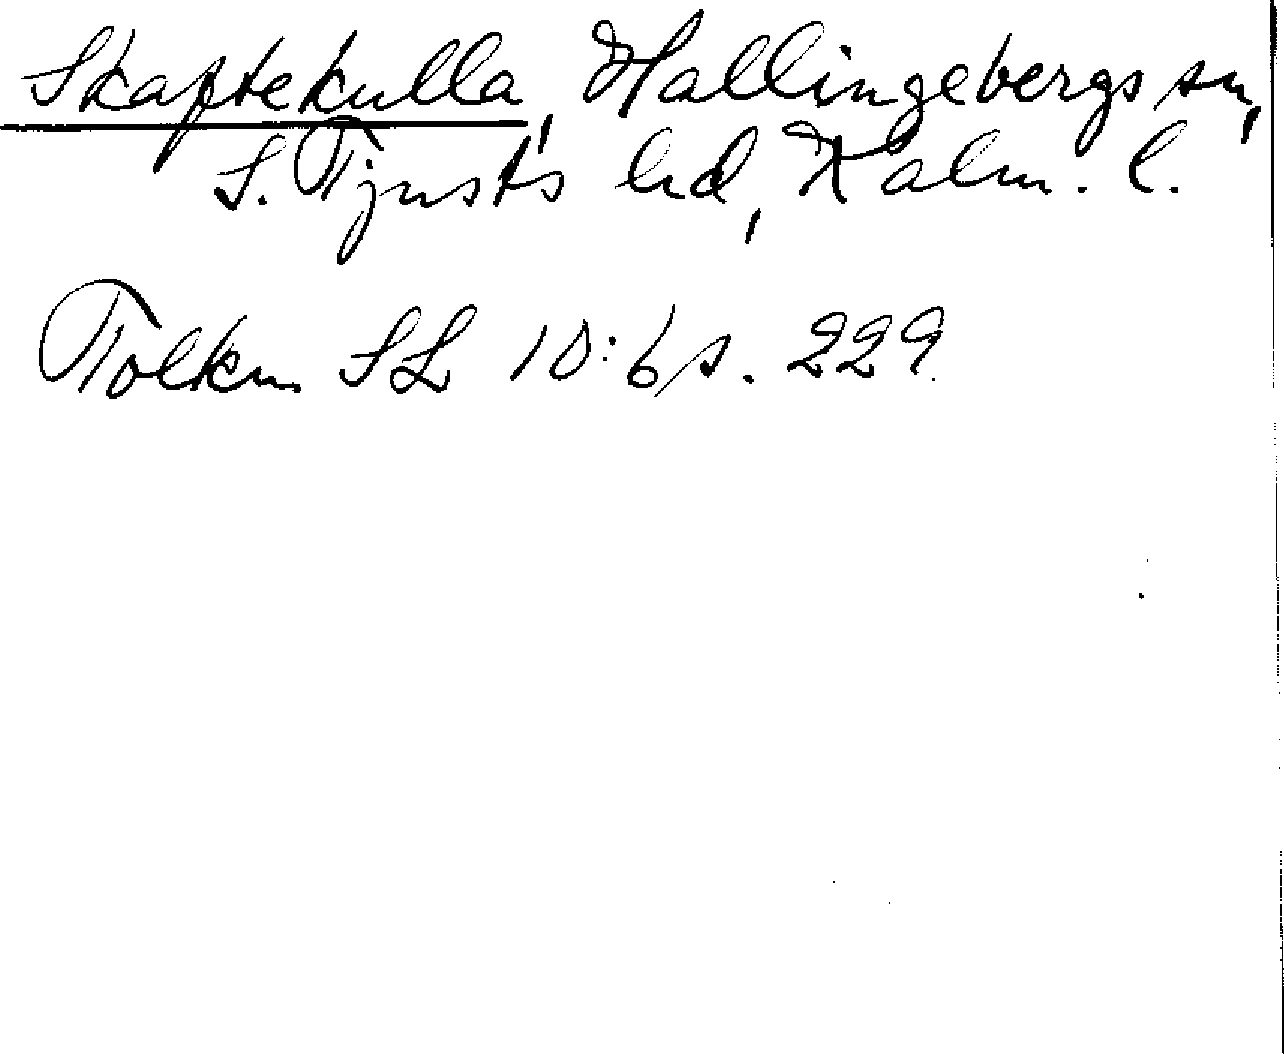 Skaftekulla, Hallingebergs sn,
S. Tjusts hd, Kalm. l.
Tolkn SL 10:6 s. 229